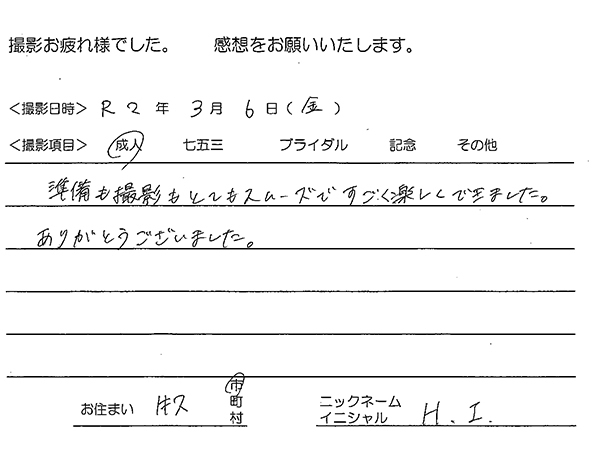 撮影お疲れ様でした。 感想をお願いいたします。
<撮影日時> R2年 3月 6日(金)
<撮影項目> 成人 七五三 ブライダル 記念 その他
準備も撮影もとてもスムーズですごく楽しくできました。
ありがとうございました。
お住まい 市町村 ニックネーム イニシャル H.I.